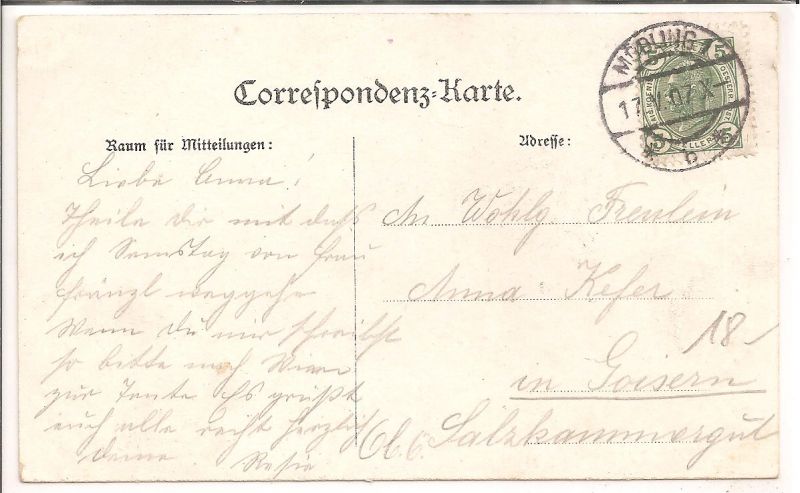 Correspondenz-Karte.
Raum für Mitteilungen:
Liebe Anna!
Theile Dir mit daß
ich Samstag von Frau
Fränzl weggehe
Wenn du mir schreibst
so bitte nach Wien
zur Tante Es grüßt
euch alle recht herzlich
deine Resie
Adresse:
MÖDLING 1
17. V. 07. X
* b *
5 5
5 HELLER 5
An Wohlg Freulein
Anna Kefer
18-
in Goisern
Salzkammergut